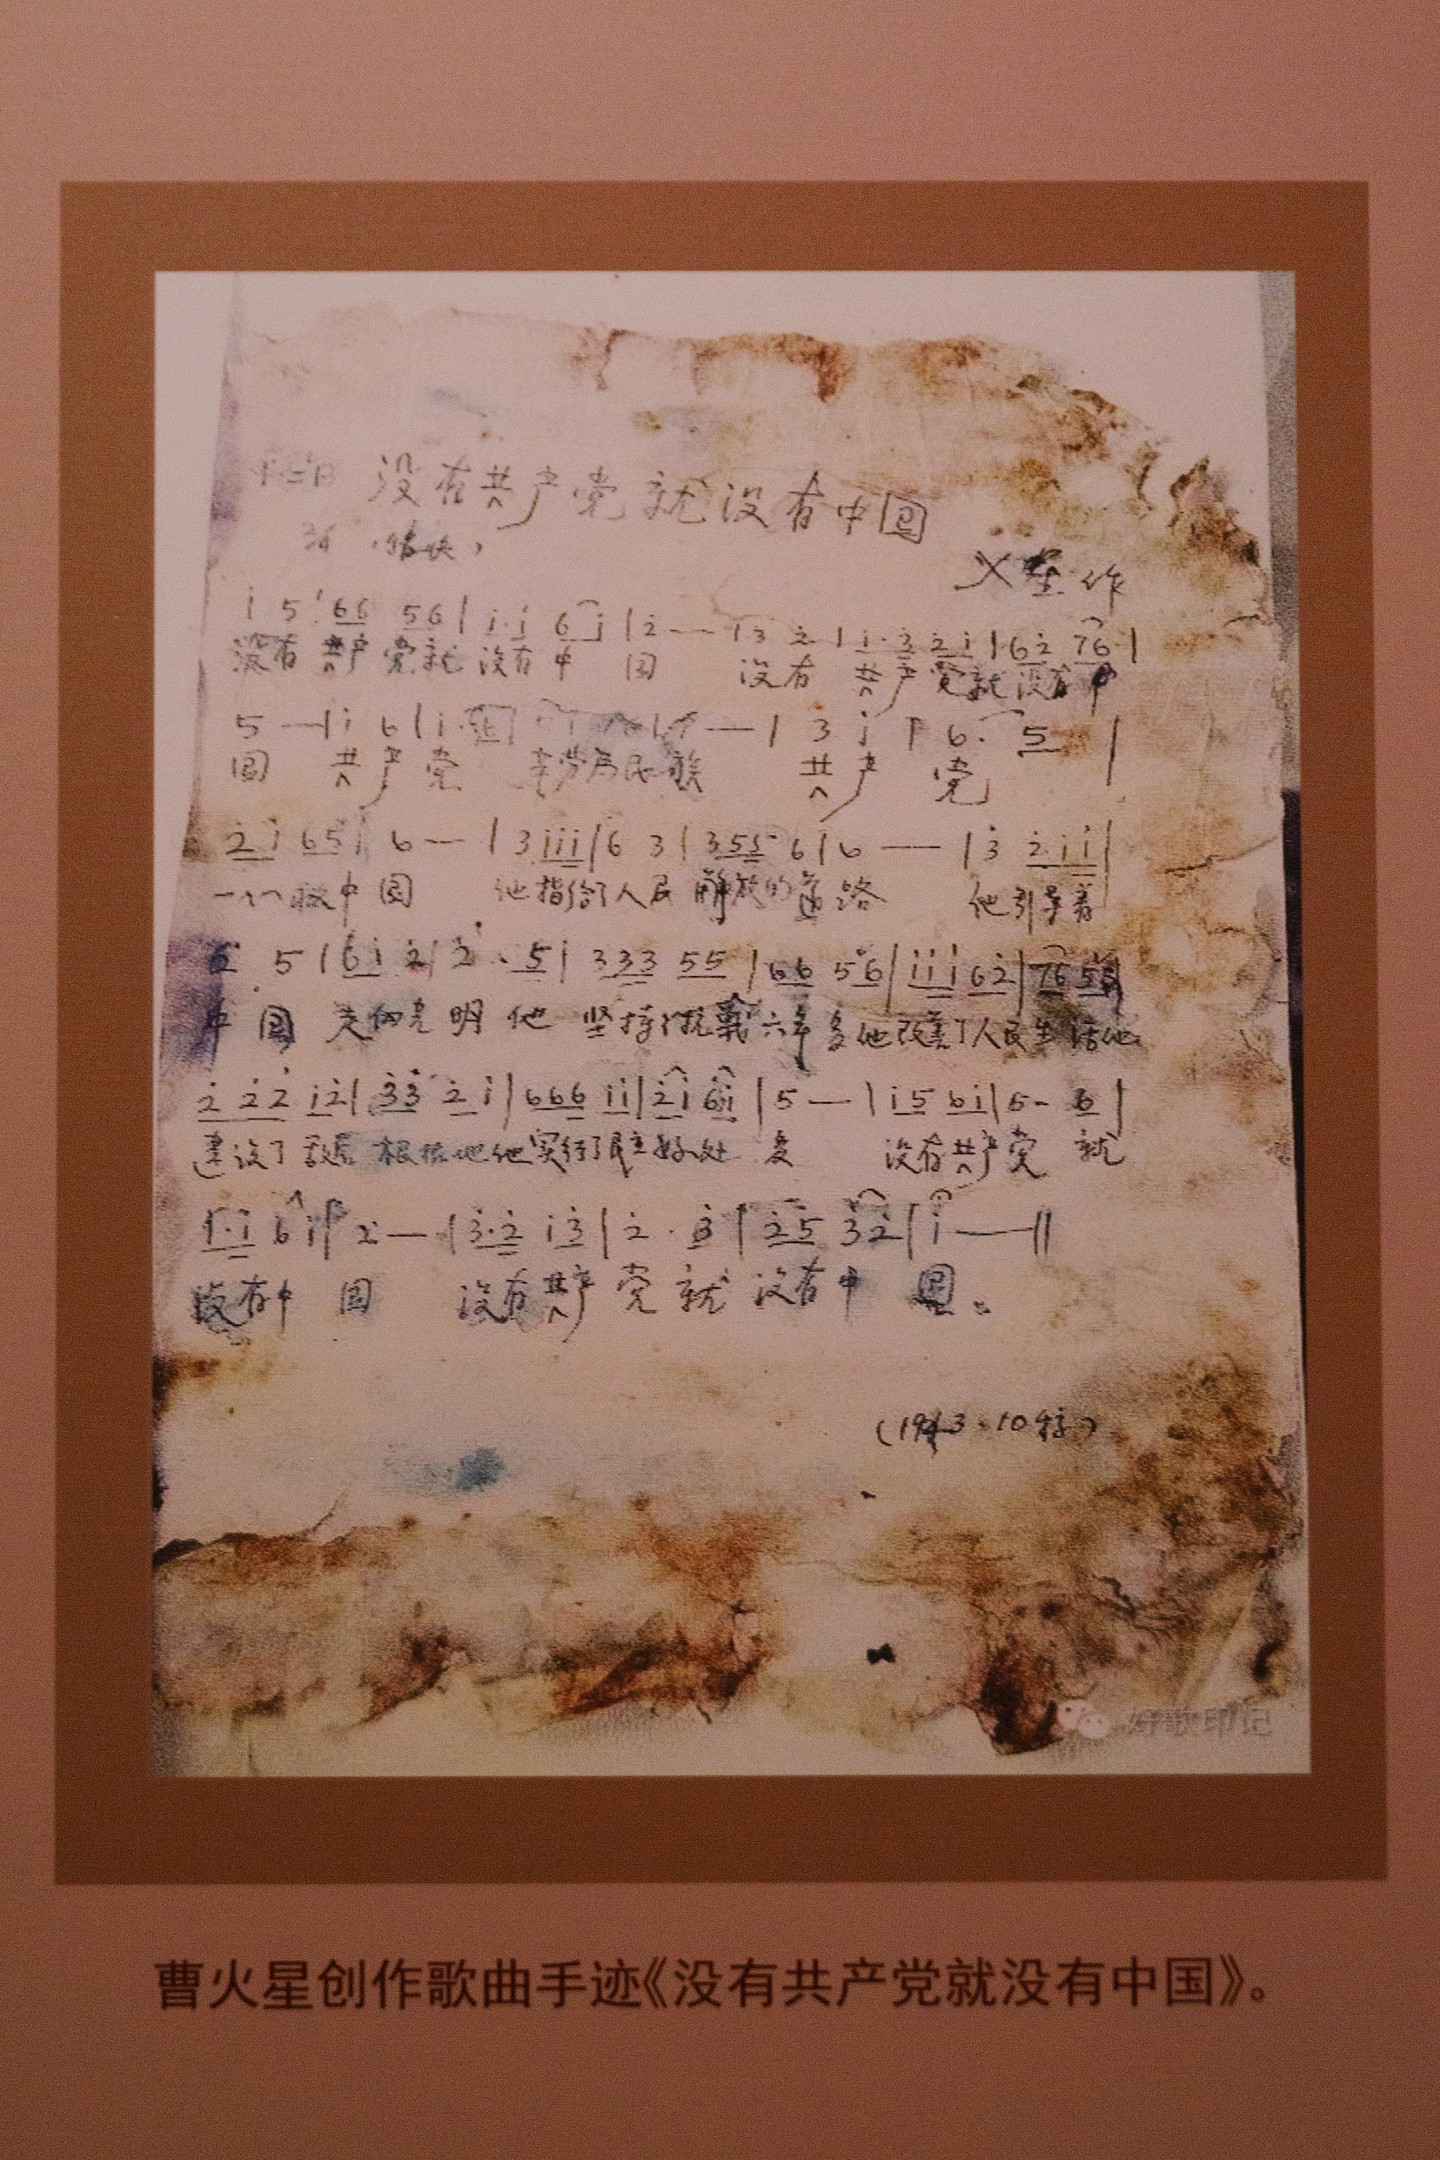 没有共产党就没有中国
火星 作
i 5 66 56 | i·i 6 i | 2 — | 3 2 | i·3 2 i | 62 76 |
没有 共产 党就 没有 中 国 没有 共产 党就 没有 中
5 — | i 6 | i· — | 3 i | 6· 5 |
国 共产党 辛劳为民族 共产党
2 i 65 | 6 — | 3 iii | 6 3 | 355 6 | 6 — | 3 2·i i |
一心救中国 他指给了人民 解放的道路 他引导着
6 5 | 6i 2 | 2 · 5 | 333 55 | 66 56 | iii 62 | 76 55 |
中国 走向光明 他 坚持了抗战六年多他改善了人民生活他
2 22 i2 | 33 2 i | 666 ii | 2i 6i | 5 — | i5 6i | 5· 6 |
建设了敌后 根据地他实行了民主好处 多 没有共产党 就
i·i 6 i | 2 — | 3·2 i3 | 2 · 3 | 25 32 | i — ‖
没有中 国 没有共产 党 就 没有中 国。
(1943·10 )
好歌印记
曹火星创作歌曲手迹《没有共产党就没有中国》。